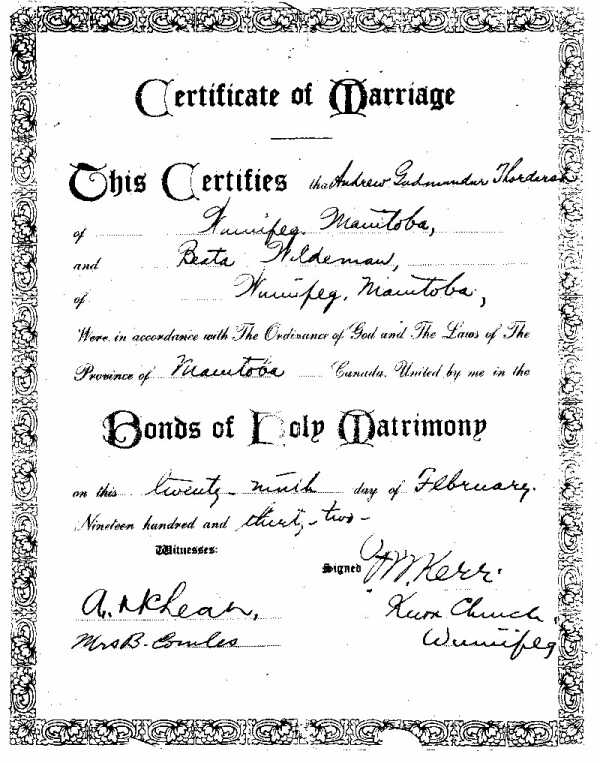 Certificate of Marriage
This Certifies that Andrew Gudmundur Thordarson
of Winnipeg. Manitoba,
and Beata Wildeman,
of Winnipeg, Manitoba,
Were in accordance with The Ordinance of God and The Laws of The
Province of Manitoba Canada. United by me in the
Bonds of Holy Matrimony
on this twenty-ninth day of February.
Nineteen hundred and thirty-two-
Witnesses:
Signed M. Kerr.
A. McLean,
Church,
Mrs B. Winnipeg